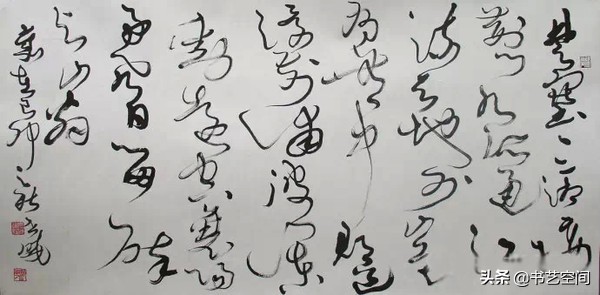 楚塞三湘接
荆门九派通江
流天地外山色
有无中郡邑
浮前浦波澜
动远空襄阳
好风日留醉
与山翁
岁在己卯之秋
头条 @书艺空间